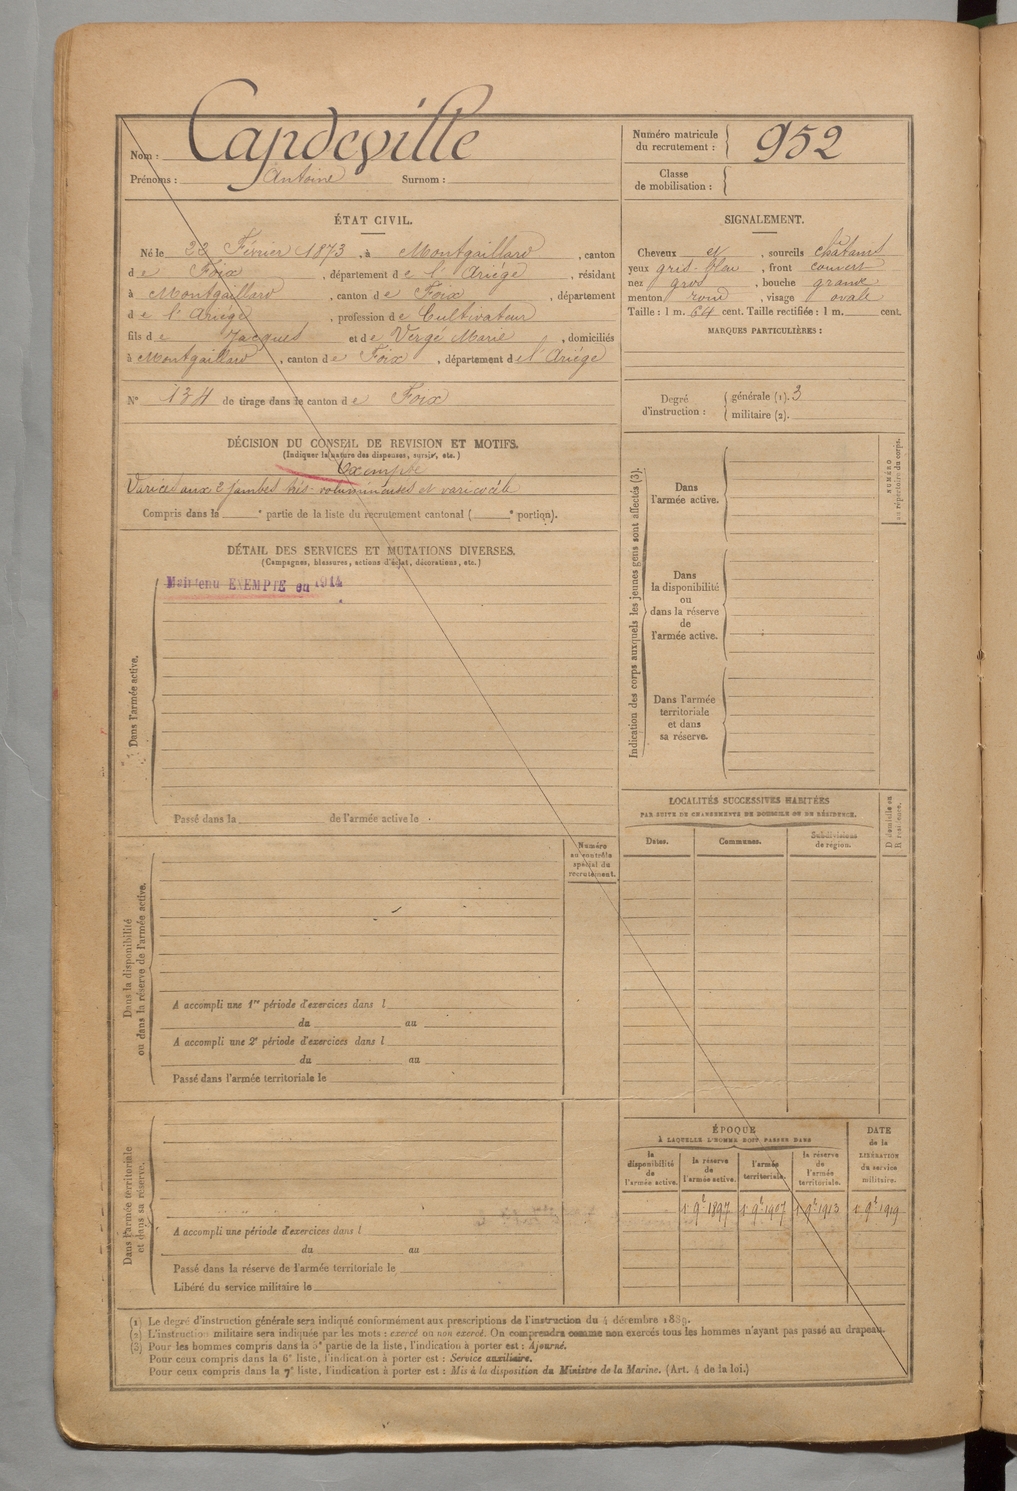 Nom : Capdeville
Prénoms : Antoine Surnom :
Numéro matricule du recrutement : 952
Classe de mobilisation :
ÉTAT CIVIL.
Né le 22 Février 1873, à Montgaillard, canton
de Foix, département de l'Ariége, résidant
à Montgaillard, canton de Foix, département
de l'Ariége, profession de Cultivateur
fils de Jacques et de Vergé Marie, domiciliés
à Montgaillard, canton de Foix, département de l'Ariége
N° 134 de tirage dans le canton de Foix
SIGNALEMENT.
Cheveux et, sourcils châtains
yeux gris-bleu, front couvert
nez gros, bouche grande
menton rond, visage ovale
Taille : 1 m. 64 cent. Taille rectifiée : 1 m. cent.
MARQUES PARTICULIÈRES :
Degré d'instruction : générale (1). 3
militaire (2).
DÉCISION DU CONSEIL DE REVISION ET MOTIFS.
(Indiquer la nature des dispenses, sursis, etc.)
Exempté
Varices aux 2 jambes très-volumineuses et varicocèle
Compris dans la e partie de la liste du recrutement cantonal ( e portion).
DÉTAIL DES SERVICES ET MUTATIONS DIVERSES.
(Campagnes, blessures, actions d'éclat, décorations, etc.)
Maintenu EXEMPTE en 1914
Dans l'armée active.
Passé dans la de l'armée active le
Indication des corps auxquels les jeunes gens sont affectés (3).
NUMÉRO au répertoire du corps.
Dans l'armée active.
Dans la disponibilité ou dans la réserve de l'armée active.
Dans l'armée territoriale et dans sa réserve.
LOCALITÉS SUCCESSIVES HABITÉES
PAR SUITE DE CHANGEMENTS DE DOMICILE OU DE RÉSIDENCE.
Dates. Communes. Subdivisions de région.
D domicile ou R résidence.
Numéro au contrôle spécial du recrutement.
Dans la disponibilité ou dans la réserve de l'armée active.
A accompli une 1re période d'exercices dans l
du au
A accompli une 2e période d'exercices dans l
du au
Passé dans l'armée territoriale le
Dans l'armée territoriale et dans sa réserve.
A accompli une période d'exercices dans l
du au
Passé dans la réserve de l'armée territoriale le
Libéré du service militaire le
ÉPOQUE
À LAQUELLE L'HOMME DOIT PASSER DANS
la disponibilité de l'armée active.
la réserve de l'armée active.
l'armée territoriale.
la réserve de l'armée territoriale.
DATE de la LIBÉRATION du service militaire.
1 9e 1897 1 9e 1907 1 9e 1913 1 9e 1919
(1) Le degré d'instruction générale sera indiqué conformément aux prescriptions de l'instruction du 4 décembre 1889.
(2) L'instruction militaire sera indiquée par les mots : exercé ou non exercé. On comprendra comme non exercés tous les hommes n'ayant pas passé au drapeau.
(3) Pour les hommes compris dans la 5e partie de la liste, l'indication à porter est : Ajourné.
Pour ceux compris dans la 6e liste, l'indication à porter est : Service auxiliaire.
Pour ceux compris dans la 7e liste, l'indication à porter est : Mis à la disposition du Ministre de la Marine. (Art. 4 de la loi.)